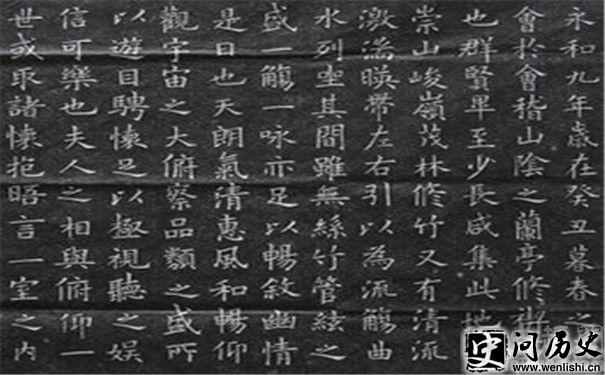 永和九年歲在癸丑暮春
會於會稽山陰之蘭亭修禊
也群賢畢至少長咸集此地
崇山峻嶺茂林修竹又有清流
激湍暎帶左右引以為流觴曲
水列坐其間雖無絲竹管絃之
盛一觴一咏亦足以暢敘幽情
是日也天朗氣清惠風和暢仰
觀宇宙之大俯察品類之盛所
以遊目騁懷足以極視聽之娛
信可樂也夫人之相與俯仰一
世或取諸懷抱晤言一室之內
史 问历史
www.wenlishi.cn